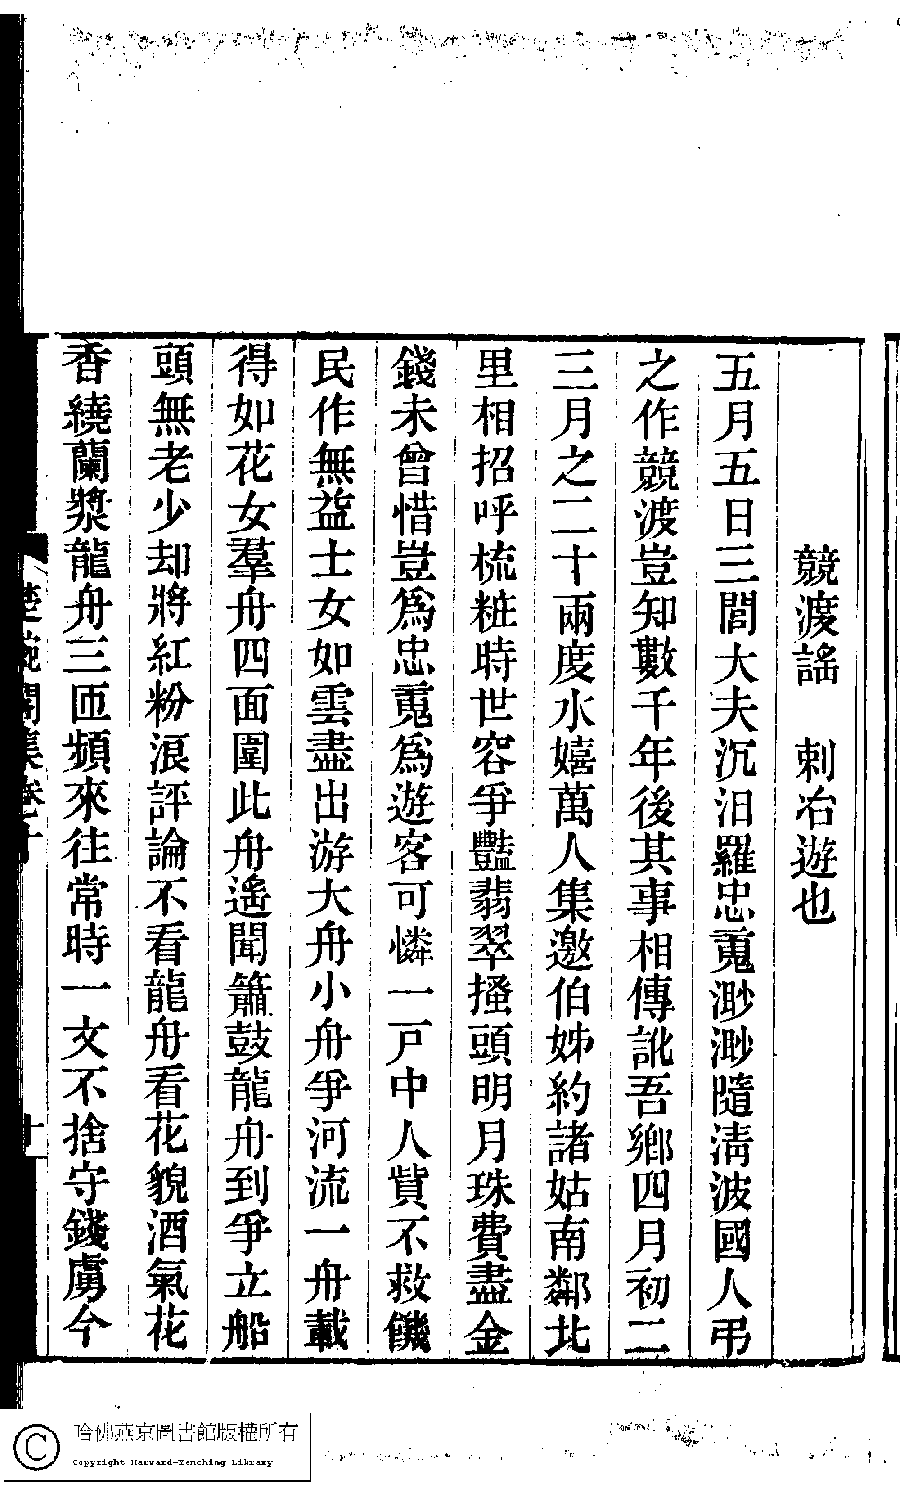 競渡謠　刺冶遊也
五月五日三閭大夫沉汨羅忠䰟渺渺隨淸波國人弔
之作競渡豈知數千年後其事相傳訛吾鄕四月初二
三月之二十兩度水嬉萬人集邀伯姊約諸姑南鄰北
里相招呼梳粧時世容爭豔翡翠搔頭明月珠費盡金
錢未曾惜豈爲忠䰟爲遊客可憐一戸中人貲不救饑
民作無益士女如雲盡出游大舟小舟爭河流一舟載
得如花女羣舟四面圍此舟遙聞簫鼓龍舟到爭立船
頭無老少却將紅粉浪評論不看龍舟看花貌酒氣花
香繞蘭槳龍舟三匝頻來往常時一文不捨守錢虜今
集卷十
十
哈佛燕京圖書館版權所有
Copyright Harvard-Yenching Library